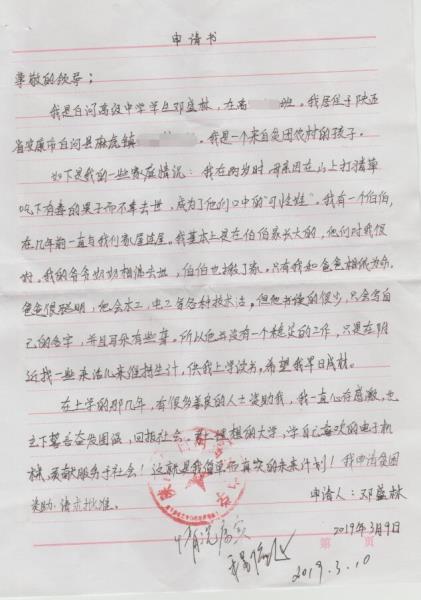 申请书
尊敬的领导：
我是白河高级中学学生邓益林，在高 班。我居住于陕西
省安康市白河县麻虎镇 。我是一个来自贫困农村的孩子。
如下是我的一些家庭情况：我在两岁时，母亲因在山上打猪草
吃下有毒的果子而不幸去世，成为了他们口中的“可怜娃”。我有一个伯伯，
在几年前一直与我们家居住屋。我基本上是在伯伯家长大的，他们对我很
好。我的爷爷奶奶相继去世，伯伯也搬了家。只有我和爸爸相依为命。
爸爸很聪明，他会木工，电工等各种技术活。但他书读的很少，只会写自
己的名字，并且耳朵有些聋。所以他并没有一个稳定的工作，只是在附
近找一些杂活儿来维持生计，供我上学读书，希望我早日成材。
在上学的那几年，有很多善良的人士资助我，我一直心存感激，也
立下誓言奋发图强，回报社会。考上理想的大学，学自己喜欢的电子机
械，贡献服务于社会！这就是我简单而真实的未来计划！我申请贫困
资助，请求批准。
申请人：邓益林
2019年3月9日
情况属实
2019.3.10
第 页